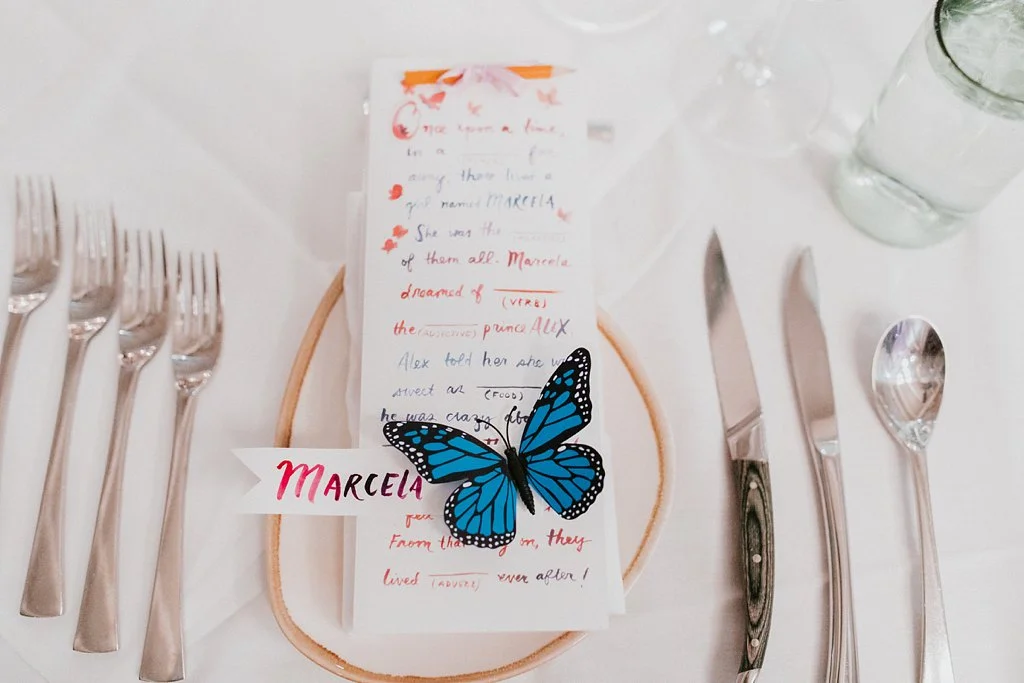 Once upon a time,
in a ________ far
away, there lived a
girl named MARCELA
She was the ________
of them all. Marcela
dreamed of ________
(VERB)
the (ADJECTIVE) prince ALEX
Alex told her she w
sweet as ________
(FOOD)
he was crazy abo
MARCELA
From that on, they
lived (ADVERB) ever after!